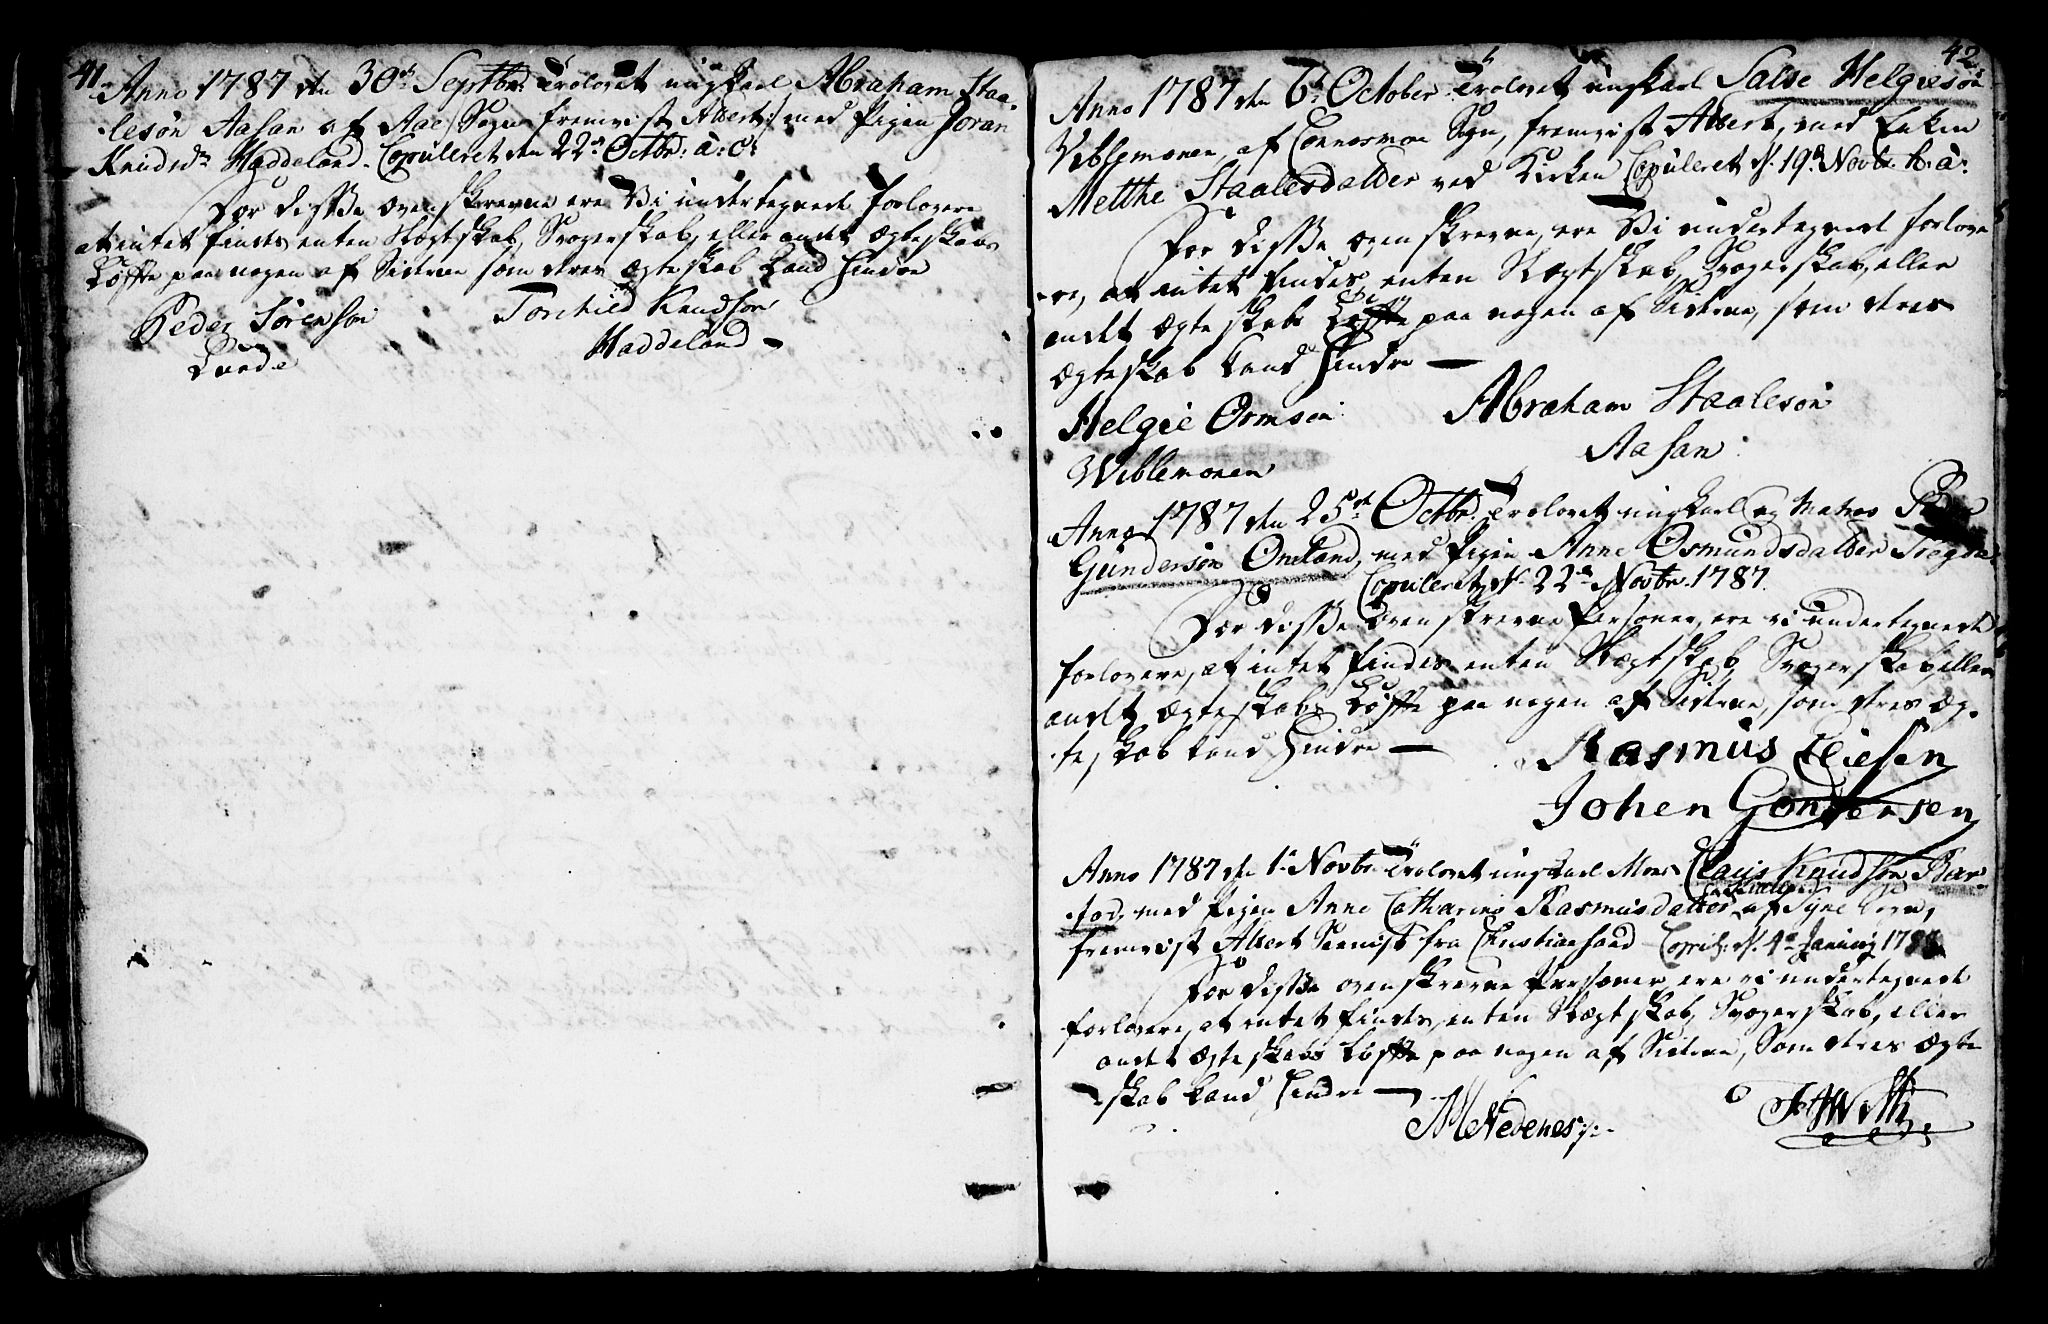 41.
Anno 1787 den 30te Septbr: Trolovet ungkarl Abraham Staa-
lesøn Aasan af Aae Sogn fremvist Attest med Pigen Joran
Knudsdr. Haddeland. Copuleret den 22de Octbr: a: c:
For disse ovenskrevne ere Vi undertegnede forlovere
at intet findes enten Slægtskab, Svogerskab, eller andet Ægteskabs
Løffte paa nogen af Siderne som deres Ægteskab kand hindre
Peder Sørenson
Lunde
Torchild Knudson
Haddeland
42.
Anno 1787 den 6te October Trolovet ungkarl Salve Helgiesøn
Viblemonen af Connesmoe Sogn, fremvist Attest, med Enken
Metthe Staalesdatter ved Kirken Copuleret d. 19de Novbr. h: a:
For disse ovenskrevne, ere Vi undertegnede forlove
re, at intet findes enten Slægtskab, Svogerskab, eller
andet Ægteskabs Løffte paa nogen af Siderne, som deres
Ægteskab kand hindre
Helgie Ormsøn
Viblemonen
Abraham Staalesøn
Aasan
Anno 1787 den 25de Octbr. Trolovet ungkarl og Matros
Gundersøn Øneland, med Pigen Anne Osmundsdatter Tregde
Copuleret d. 22de Novbr. 1787.
For disse Ovenskrevne Personer, ere vi undertegnede
forlovere, at intet findes enten Slægtskab, Svogerskab, eller
andet Ægteskabs Løffte paa nogen af Siderne, som deres Æg-
teskab kand hindre
Rasmus Tiesen
Johen Gondersen
Anno 1787 den 1te Novbr Trolovet ungkarl Mons. Claus Knudsøn Bar-
fod, med Pigen Anne Catharina Rasmusdatter af Sogne Sogn,
fremvist Attest fra Christiansand Copul: d. 4de Januarij 1788.
For disse ovenskrevne Personer ere vi undertegnede
forlovere, at intet findes, enten Slægtskab, Svogerskab, eller
andet Ægteskabs Løffte paa nogen af Siderne, Som deres Ægte
skab kand hindre
M Nedenes